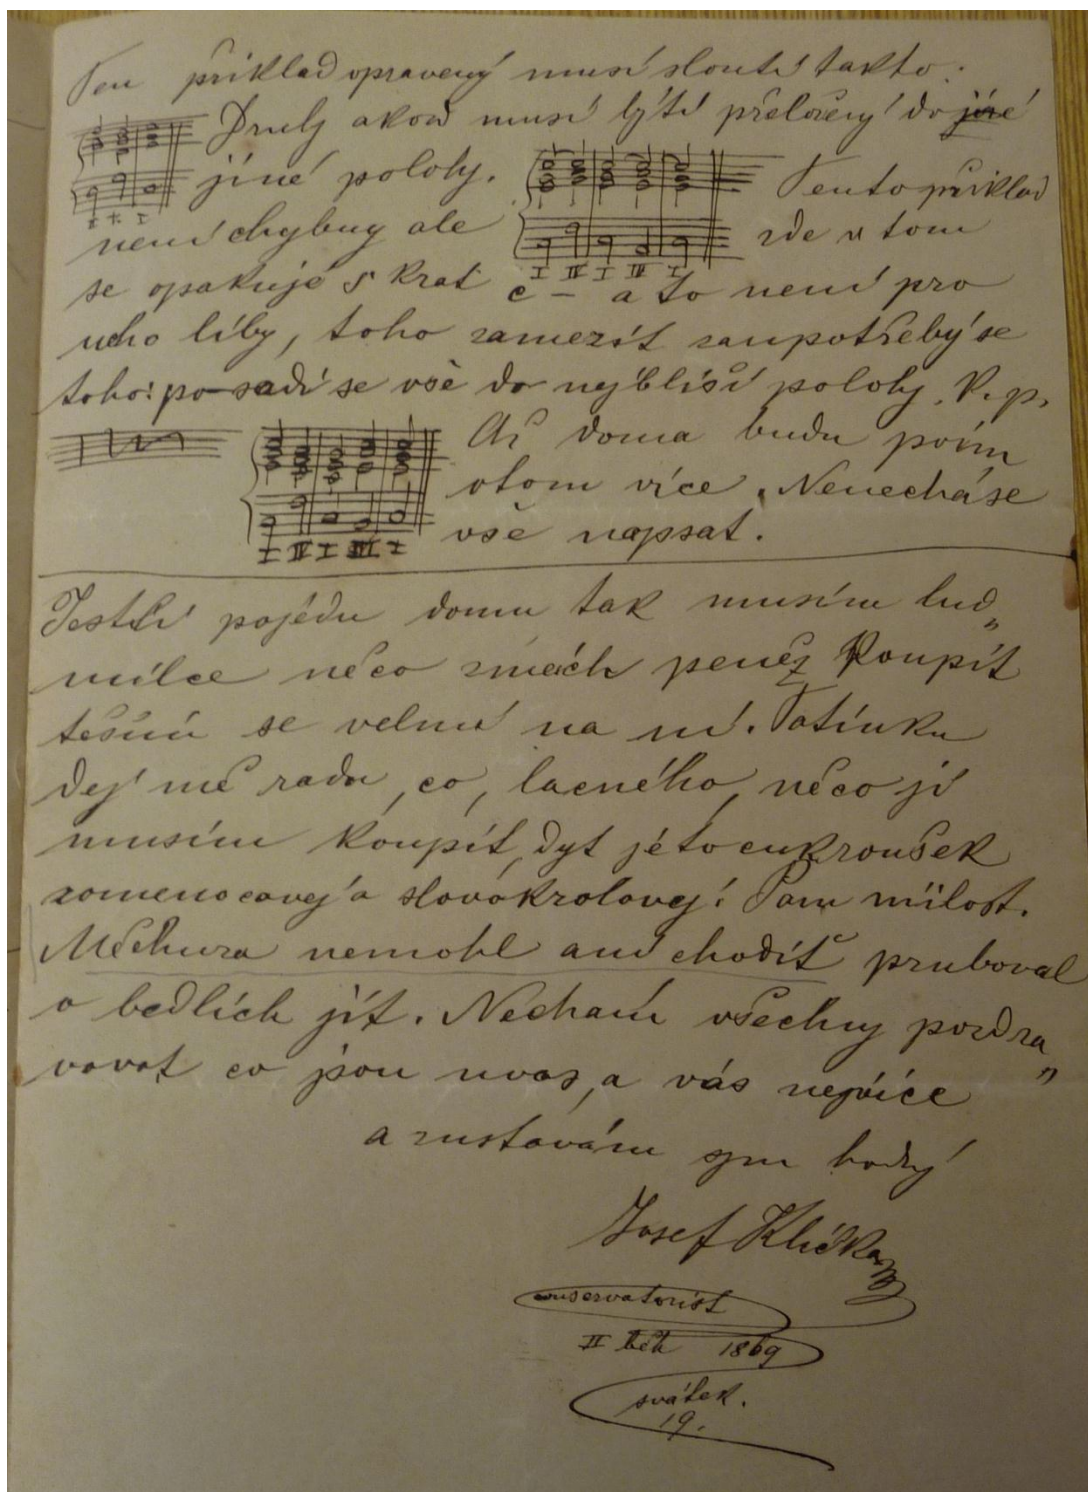 Ten příklad opravený musí slouti takto:
Druhj akord musí býti přeložený do jiné
jiné polohy.
I
I
Tento příklad
není chybný ale
zde v tom
I IV I IV I
se opakuje 5 krat c – a to není pro
ucho liby, toho zamezit zaupotřebý se
toho: po sadí se vše do nejbližší polohy. N.p.
Až doma budu povím
otom více. Nenecháse
vše napsat.
I IV I IV I
Jestli pojédu domu tak musím lud„
milce něco zmých peněz koupit
těším se velmi na ni. Tatínku
dej mě radu, co, lacného, něco jí
musím koupit, dyt jéto cukroušek
a
Měchura nemohl ani chodiť pruboval
o bedlích jít. Nechám všechny pozdra„
vovat co jsou uvas, a vás nejvíce
a zustávám syn hodný
Josef Klička
conservatorist
II běh 1869
svátek.
19.